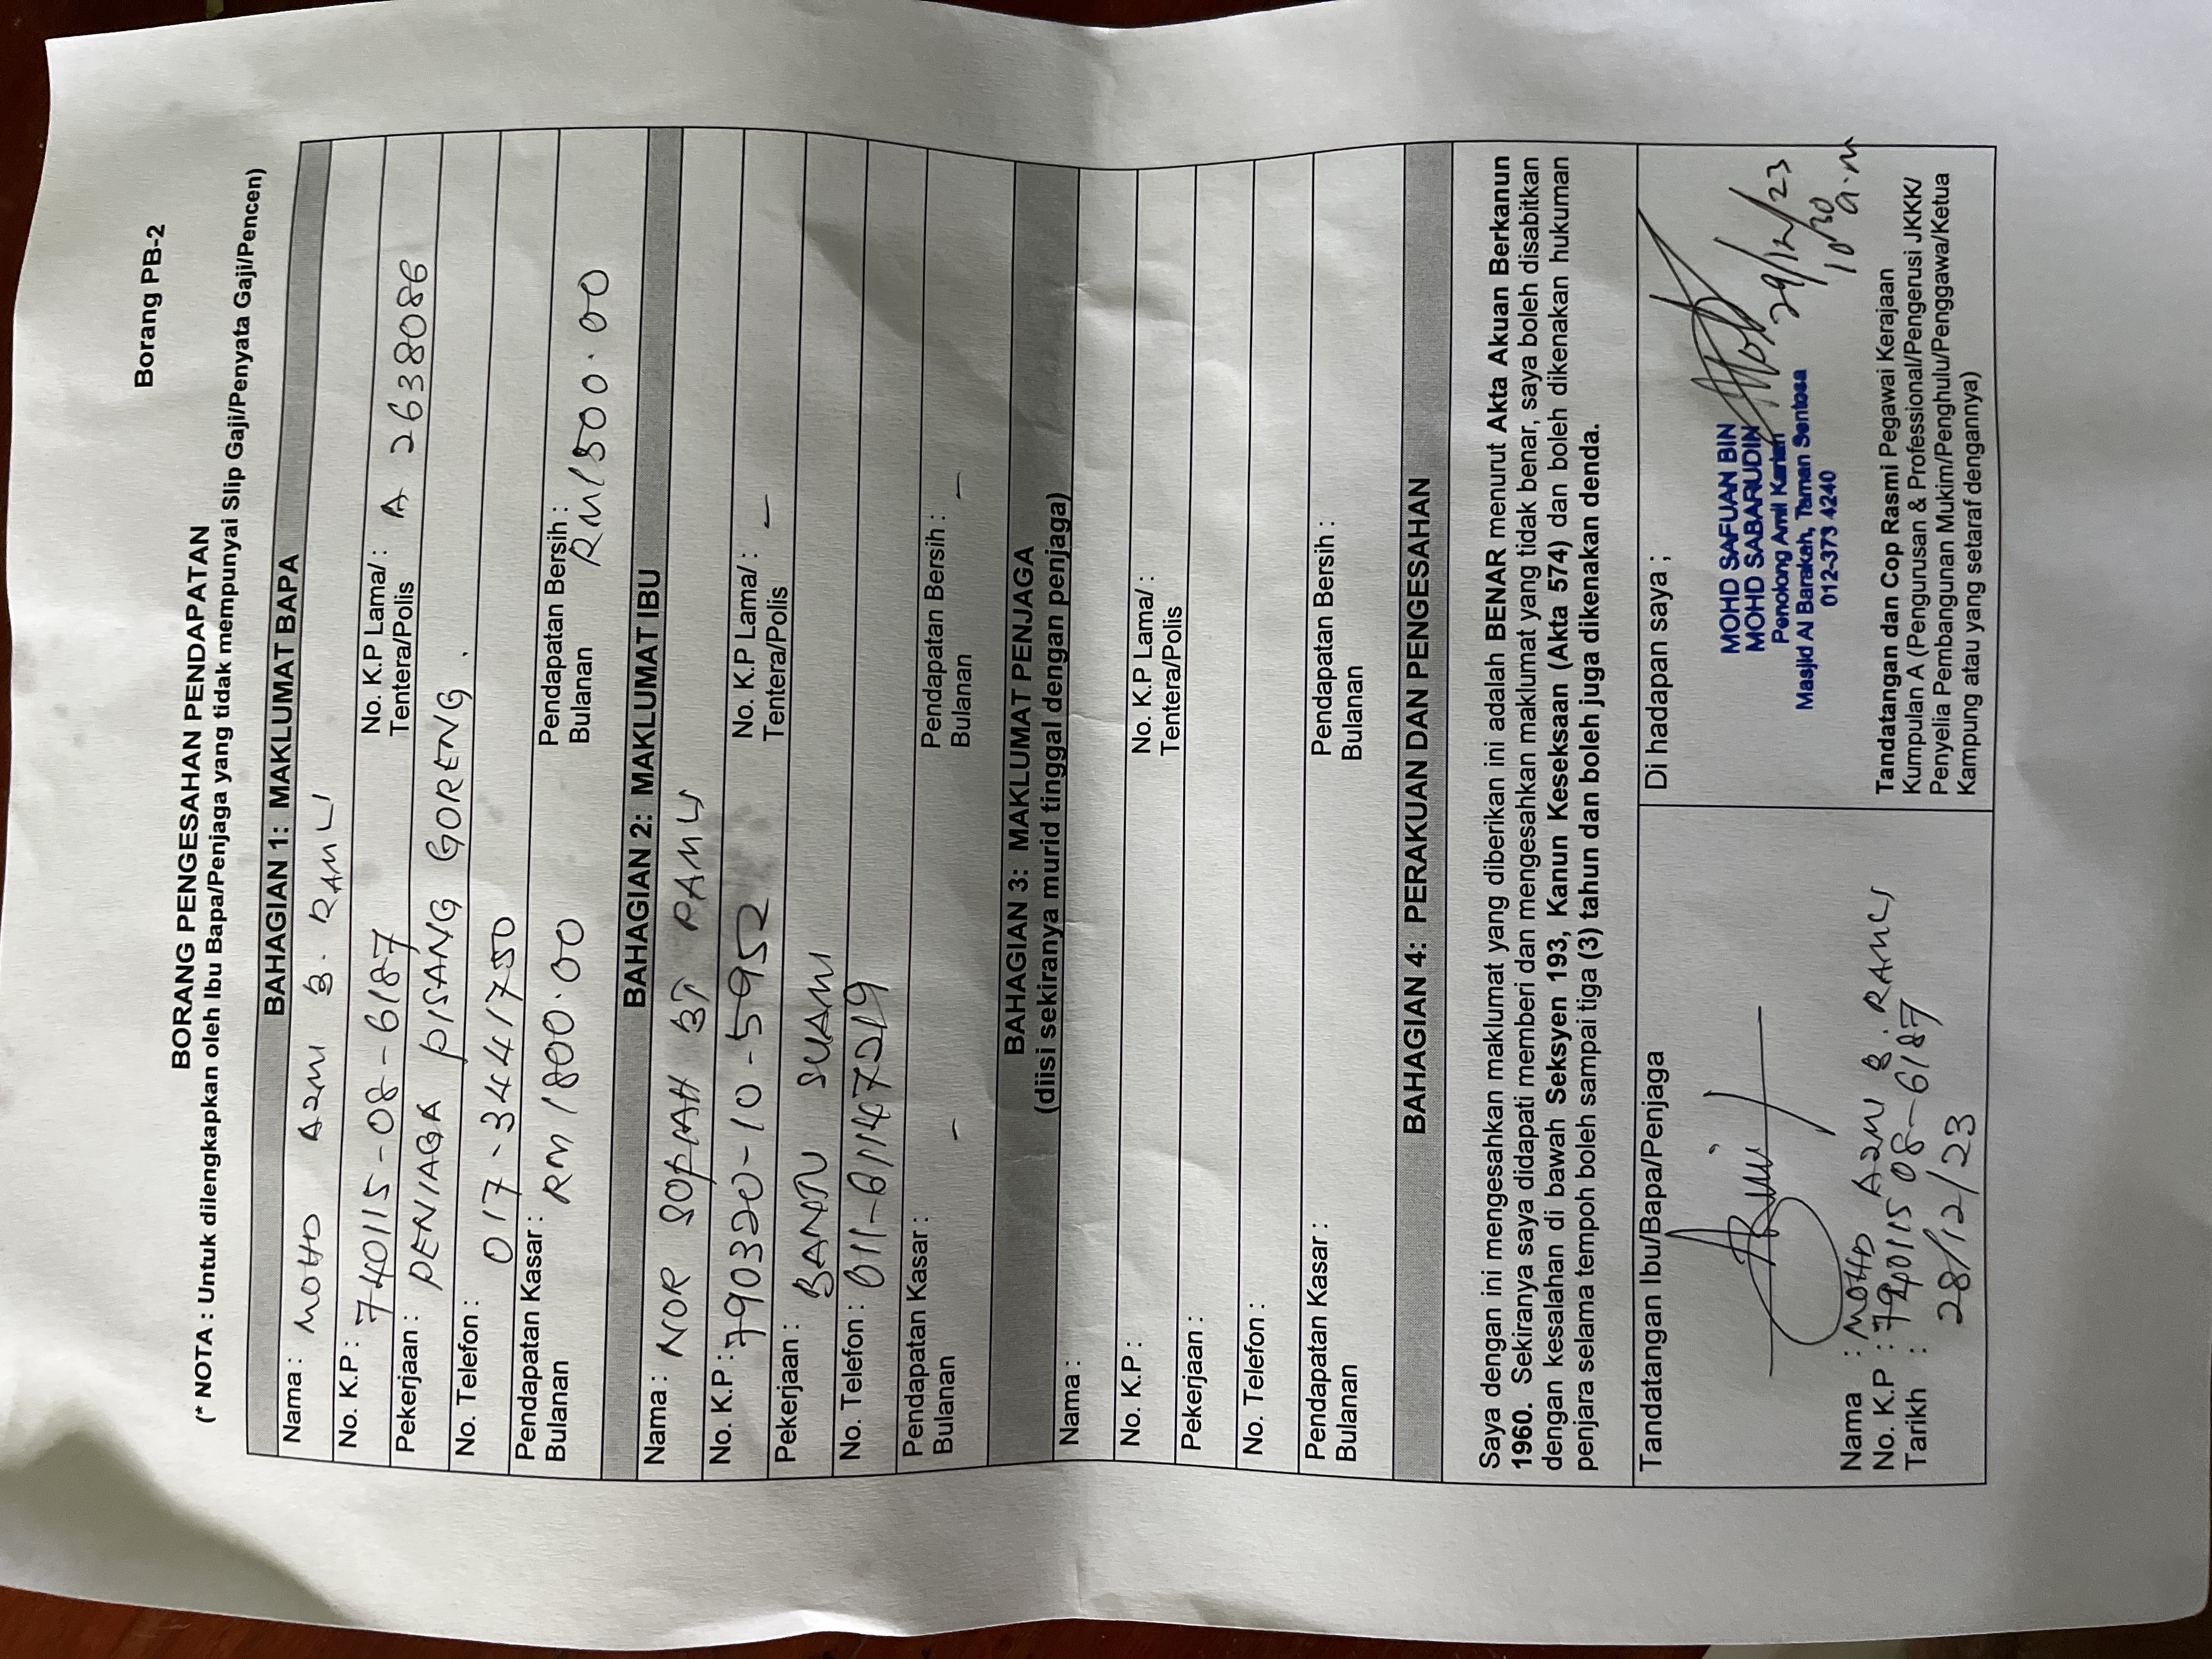 Borang PB-2
BORANG PENGESAHAN PENDAPATAN
(* NOTA : Untuk dilengkapkan oleh Ibu Bapa/Penjaga yang tidak mempunyai Slip Gaji/Penyata Gaji/Pencen)
BAHAGIAN 1: MAKLUMAT BAPA
Nama : MOHD AZMI B. RAMLI
No. K.P : 740115-08-6187 No. K.P Lama/ : A 2638086
Tentera/Polis
Pekerjaan : PENIAGA PISANG GORENG.
No. Telefon : 017-3441750
Pendapatan Kasar : RM 1800.00 Pendapatan Bersih : RM1500.00
Bulanan Bulanan
BAHAGIAN 2: MAKLUMAT IBU
Nama : NOR SOFIAH BT RAMLI
No. K.P : 790320-10-5952 No. K.P Lama/ : -
Tentera/Polis
Pekerjaan : BANTU SUAMI
No. Telefon : 011-61147219
Pendapatan Kasar : - Pendapatan Bersih : -
Bulanan Bulanan
BAHAGIAN 3: MAKLUMAT PENJAGA
(diisi sekiranya murid tinggal dengan penjaga)
Nama :
No. K.P : No. K.P Lama/ :
Tentera/Polis
Pekerjaan :
No. Telefon :
Pendapatan Kasar : Pendapatan Bersih :
Bulanan Bulanan
BAHAGIAN 4: PERAKUAN DAN PENGESAHAN
Saya dengan ini mengesahkan maklumat yang diberikan ini adalah BENAR menurut Akta Akuan Berkanun
1960. Sekiranya saya didapati memberi dan mengesahkan maklumat yang tidak benar, saya boleh disabitkan
dengan kesalahan di bawah Seksyen 193, Kanun Keseksaan (Akta 574) dan boleh dikenakan hukuman
penjara selama tempoh boleh sampai tiga (3) tahun dan boleh juga dikenakan denda.
Tandatangan Ibu/Bapa/Penjaga
Nama : MOHD AZMI B. RAMLI
No. K.P : 740115 08-6187
Tarikh :
28/12/23
Di hadapan saya ;
MOHD SAFUAN BIN
MOHD SABARUDIN
Penolong Amil Kariah
Masjid Al Barakah, Taman Sentosa
012-373 4240
29/12/23
10 30 a.m
Tandatangan dan Cop Rasmi Pegawai Kerajaan
Kumpulan A (Pengurusan & Professional/Pengerusi JKKK/
Penyelia Pembangunan Mukim/Penghulu/Penggawa/Ketua
Kampung atau yang setaraf dengannya)